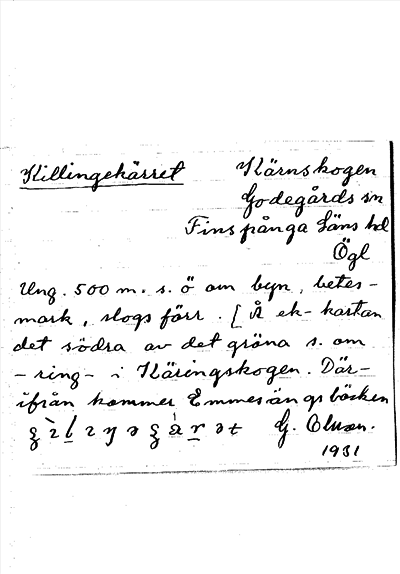 Killingekärret
Kärnskogen
Godegårds sn
Finspånga läns hd
Ögl
Ung. 500 m. s. ö om byn, betes-
mark, slogs förr. [Å ek-kartan
det södra av det gröna s. om
-ring- i Käringskogen. Där-
ifrån kommer Emmesängsbäcken
G. Olson.
1931